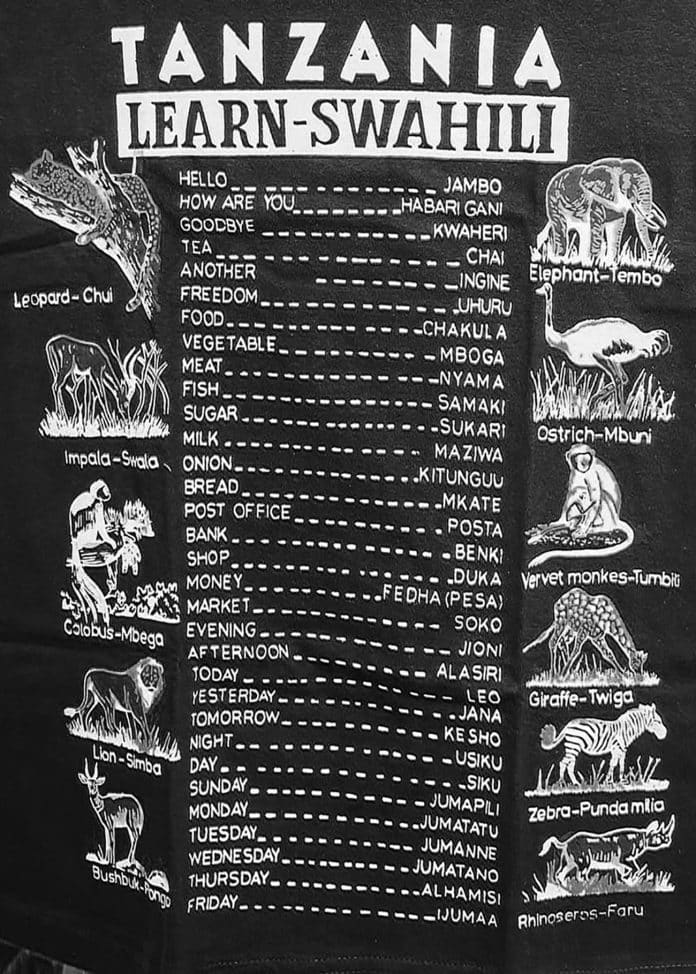 TANZANIA
LEARN-SWAHILI
HELLO JAMBO
HOW ARE YOU HABARI GANI
GOODBYE KWAHERI
TEA CHAI
ANOTHER INGINE
FREEDOM UHURU
FOOD CHAKULA
VEGETABLE MBOGA
MEAT NYAMA
FISH SAMAKI
SUGAR SUKARI
MILK MAZIWA
ONION KITUNGUU
BREAD MKATE
POST OFFICE POSTA
BANK BENKI
SHOP DUKA
MONEY FEDHA (PESA)
MARKET SOKO
EVENING JIONI
AFTERNOON ALASIRI
TODAY LEO
YESTERDAY JANA
TOMORROW KESHO
NIGHT USIKU
DAY SIKU
SUNDAY JUMAPILI
MONDAY JUMATATU
TUESDAY JUMANNE
WEDNESDAY JUMATANO
THURSDAY ALHAMISI
FRIDAY IJUMAA
Leopard-Chui
Impala-Swala
Colobus-Mbega
Lion-Simba
Bushbuk-Pongo
Elephant-Tembo
Ostrich-Mbuni
Vervet monkes-Tumbiti
Giraffe-Twiga
Zebra-Punda milia
Rhinoseros-Faru